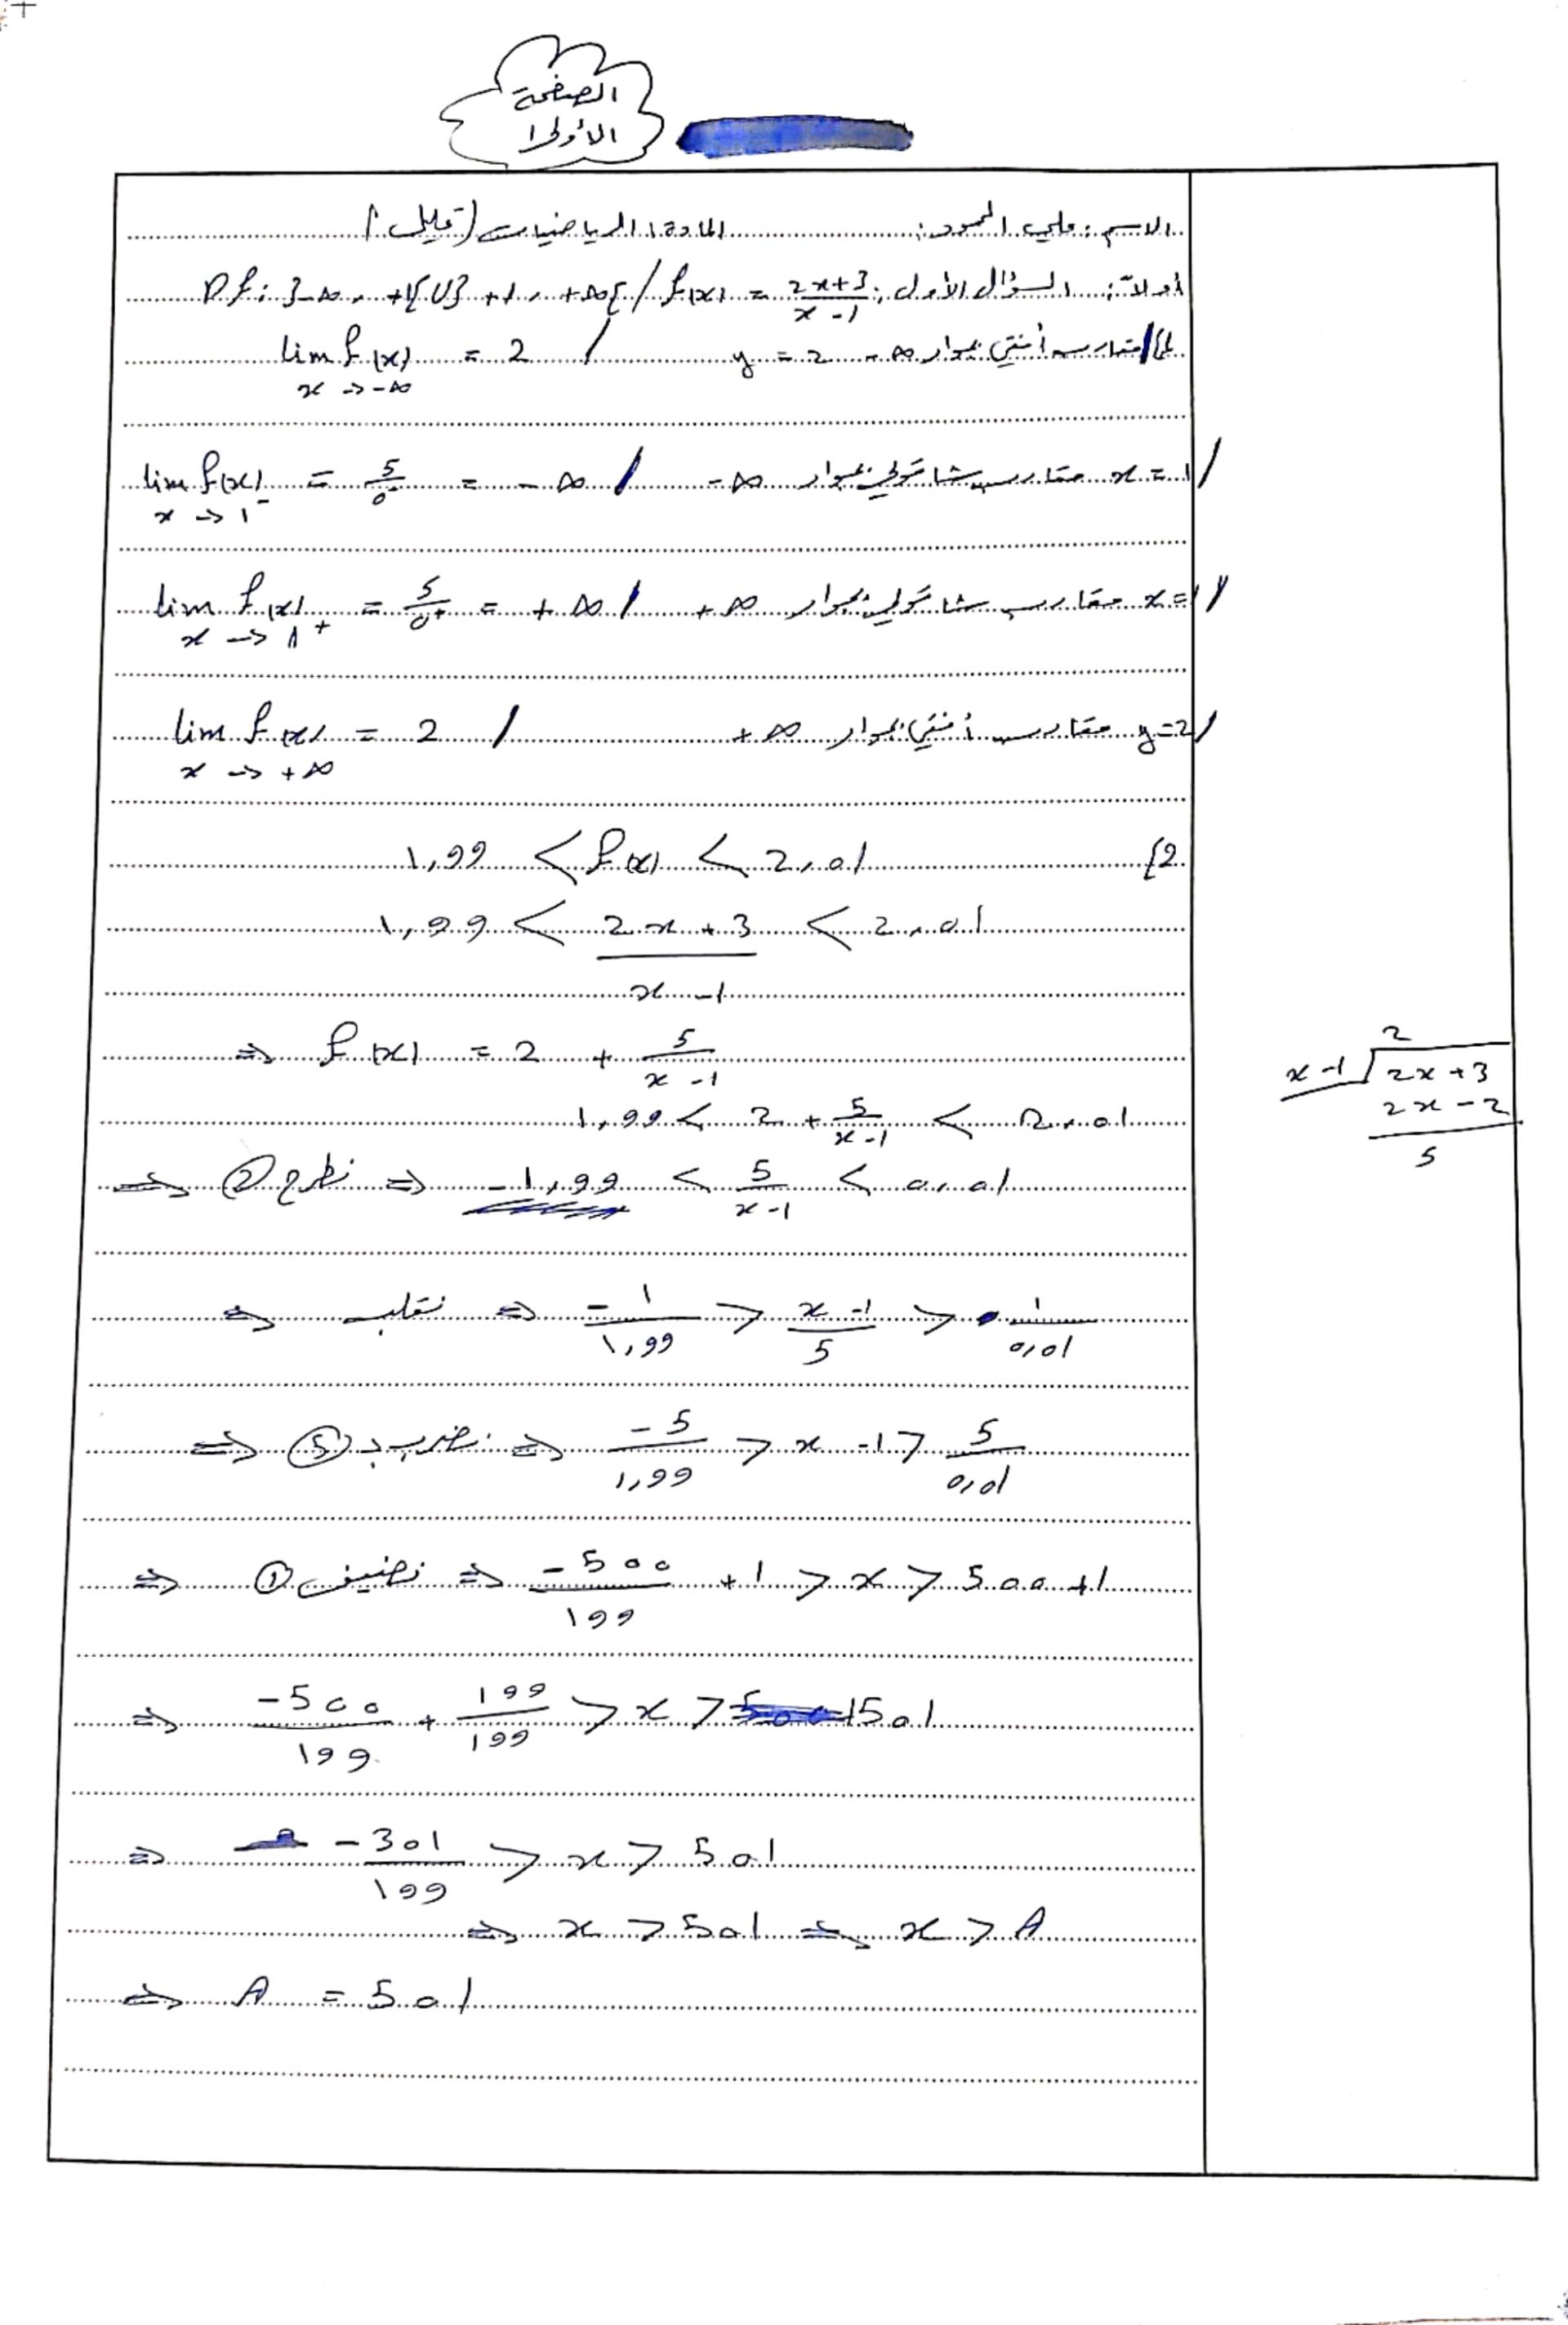 الصفحة
الأولى
الاسم: علي الحمود المادة: الرياضيات (تحليل)
أولاً: السؤال الأول: f(x) = \frac{2x+3}{x-1} / Df: ]-∞, +1[ ∪ ]+1, +∞[
1) مقارب أفقي بجوار -∞ y = 2 / lim_{x → -∞} f(x) = 2
lim_{x → 1^-} f(x) = \frac{5}{0^-} = -∞ / x = 1 مقارب شاقولي بجوار -∞
lim_{x → 1^+} f(x) = \frac{5}{0^+} = +∞ / x = 1 مقارب شاقولي بجوار +∞
lim_{x → +∞} f(x) = 2 / y = 2 مقارب أفقي بجوار +∞
2) 1,99 < f(x) < 2,01
1,99 < \frac{2x+3}{x-1} < 2,01
⇒ f(x) = 2 + \frac{5}{x-1}
1,99 < 2 + \frac{5}{x-1} < 2,01
⇒ نطرح (2) ⇒ -1,99 < \frac{5}{x-1} < 0,01
⇒ نقلب ⇒ -\frac{1}{1,99} > \frac{x-1}{5} > \frac{1}{0,01}
⇒ نضرب بـ (5) ⇒ \frac{-5}{1,99} > x-1 > \frac{5}{0,01}
⇒ نضيف (1) ⇒ \frac{-500}{199} + 1 > x > 500+1
⇒ \frac{-500}{199} + \frac{199}{199} > x > 501
⇒ \frac{-301}{199} > x > 501
⇒ x > 501 ⇒ x > A
⇒ A = 501
2
x-1 2x+3
2x-2
5